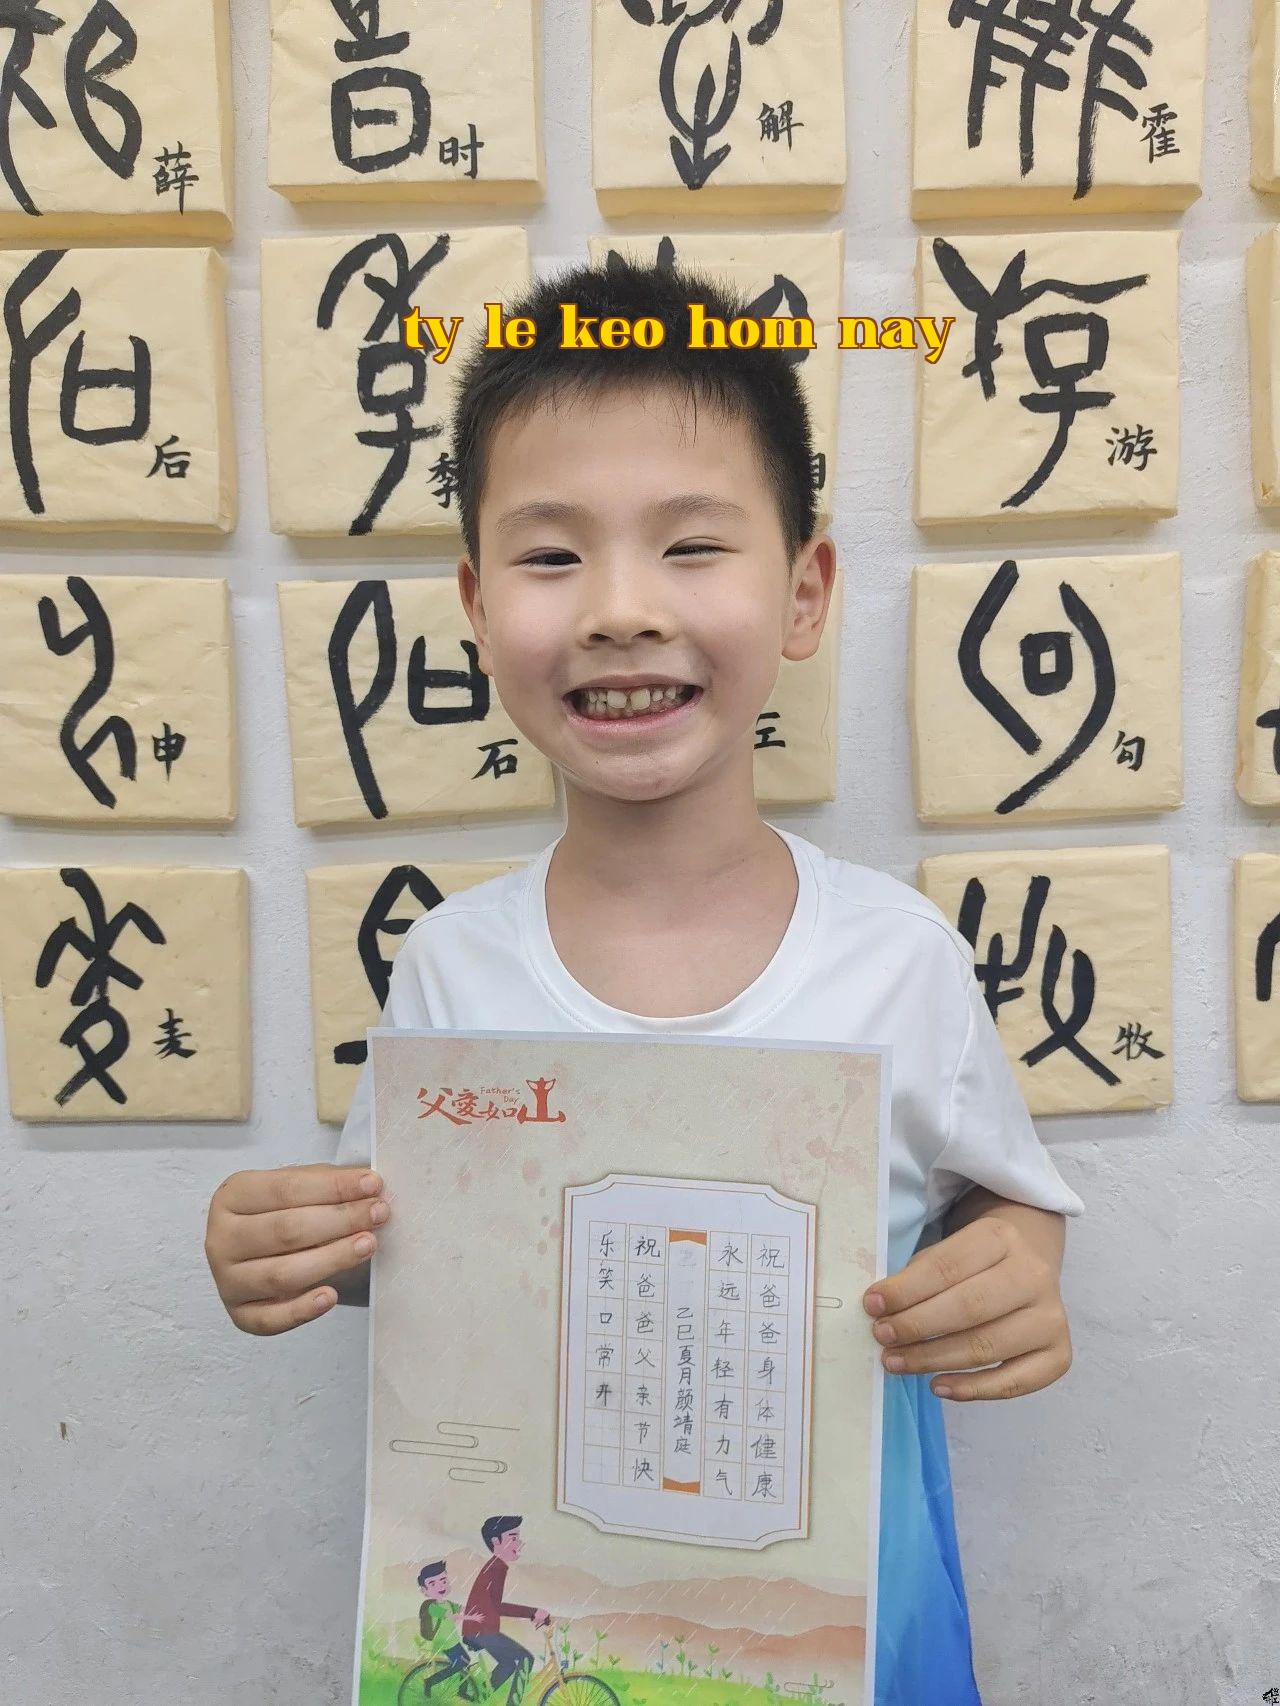 薛
时
解
霍
ty le keo hom nay
后
季
游
申
石
勾
麦
牧
父爱如山
Father's
Day
祝爸爸身体健康
永远年轻有力气
乙巳夏月颜靖庭
祝爸爸父亲节快
乐笑口常开